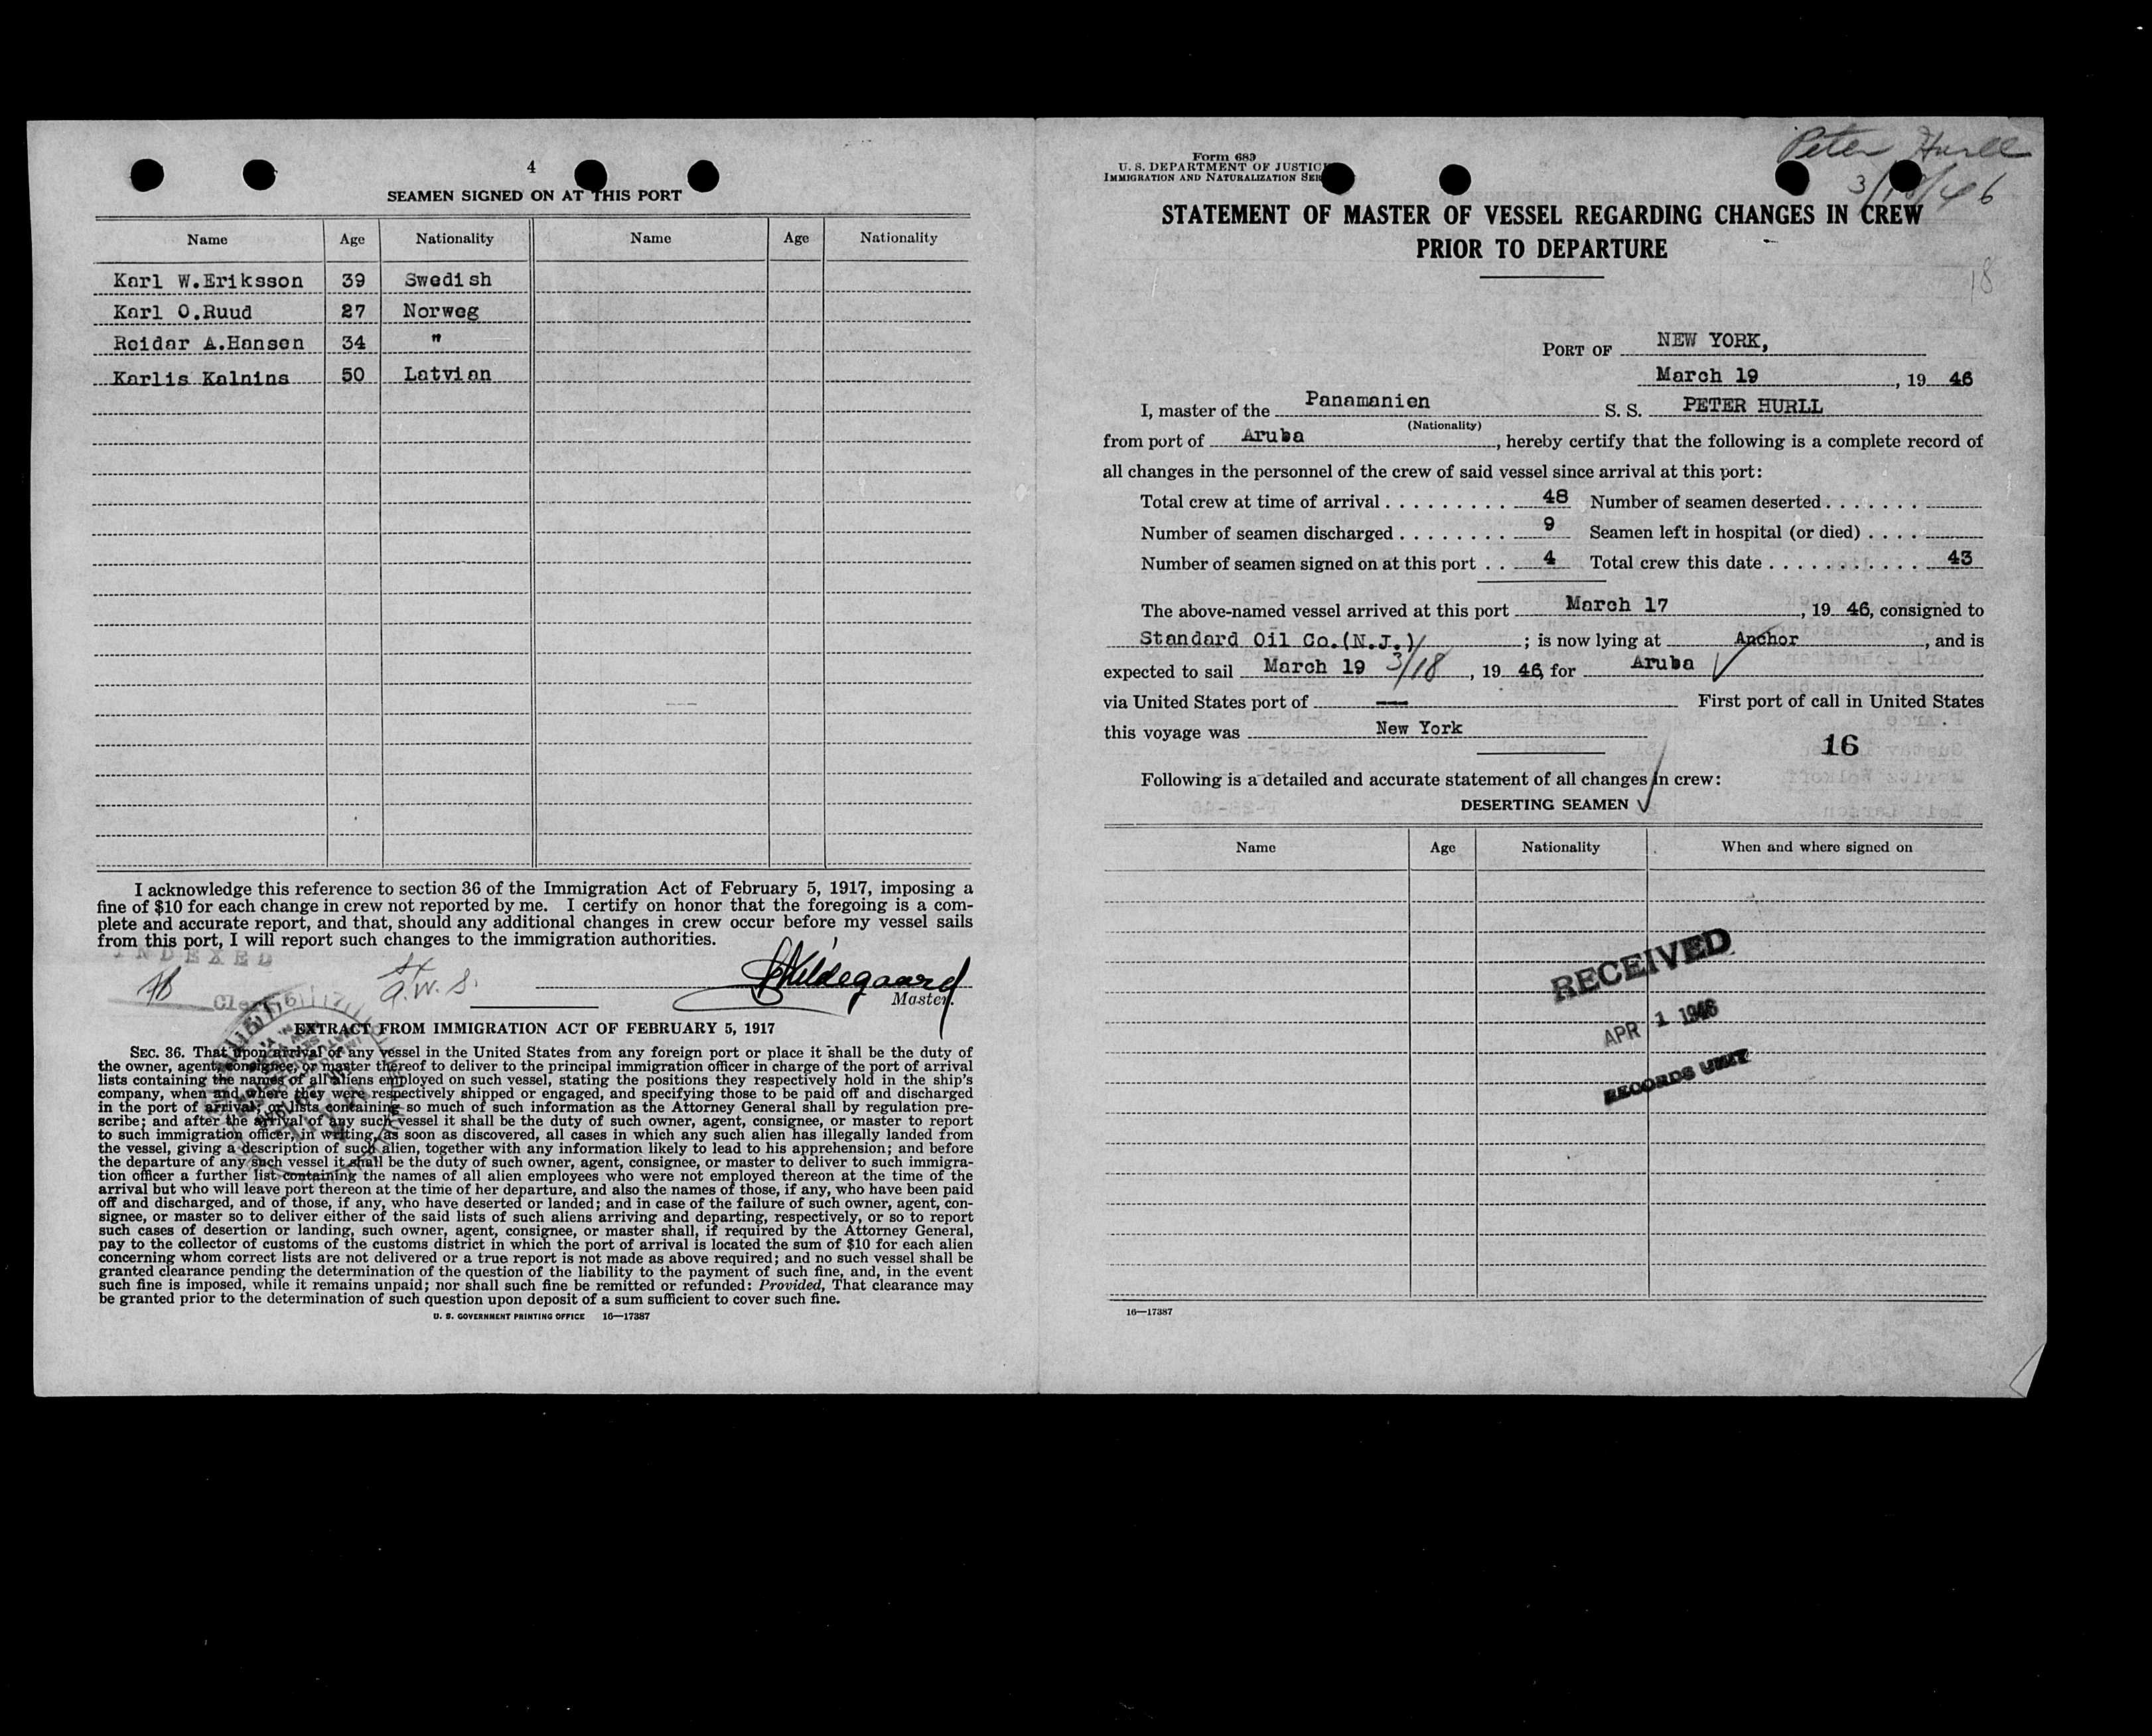 4
SEAMEN SIGNED ON AT THIS PORT
Name Age Nationality Name Age Nationality
Karl W.Eriksson 39 Swedish
Karl O.Ruud 27 Norweg
Reidar A.Hansen 34 "
Karlis Kalnins 50 Latvian
I acknowledge this reference to section 36 of the Immigration Act of February 5, 1917, imposing a
fine of $10 for each change in crew not reported by me. I certify on honor that the foregoing is a com-
plete and accurate report, and that, should any additional changes in crew occur before my vessel sails
from this port, I will report such changes to the immigration authorities.
INDEXED
Master.
EXTRACT FROM IMMIGRATION ACT OF FEBRUARY 5, 1917
SEC. 36. That upon arrival of any vessel in the United States from any foreign port or place it shall be the duty of
the owner, agent, consignee, or master thereof to deliver to the principal immigration officer in charge of the port of arrival
lists containing the names of all aliens employed on such vessel, stating the positions they respectively hold in the ship's
company, when and where they were respectively shipped or engaged, and specifying those to be paid off and discharged
in the port of arrival; or lists containing so much of such information as the Attorney General shall by regulation pre-
scribe; and after the arrival of any such vessel it shall be the duty of such owner, agent, consignee, or master to report
to such immigration officer, in writing, as soon as discovered, all cases in which any such alien has illegally landed from
the vessel, giving a description of such alien, together with any information likely to lead to his apprehension; and before
the departure of any such vessel it shall be the duty of such owner, agent, consignee, or master to deliver to such immigra-
tion officer a further list containing the names of all alien employees who were not employed thereon at the time of the
arrival but who will leave port thereon at the time of her departure, and also the names of those, if any, who have been paid
off and discharged, and of those, if any, who have deserted or landed; and in case of the failure of such owner, agent, con-
signee, or master so to deliver either of the said lists of such aliens arriving and departing, respectively, or so to report
such cases of desertion or landing, such owner, agent, consignee, or master shall, if required by the Attorney General,
pay to the collector of customs of the customs district in which the port of arrival is located the sum of $10 for each alien
concerning whom correct lists are not delivered or a true report is not made as above required; and no such vessel shall be
granted clearance pending the determination of the question of the liability to the payment of such fine, and, in the event
such fine is imposed, while it remains unpaid; nor shall such fine be remitted or refunded: Provided, That clearance may
be granted prior to the determination of such question upon deposit of a sum sufficient to cover such fine.
U. S. GOVERNMENT PRINTING OFFICE 16—17387
Peter Hurll
3/18/46
Form 689
U. S. DEPARTMENT OF JUSTIC
IMMIGRATION AND NATURALIZATION SER
STATEMENT OF MASTER OF VESSEL REGARDING CHANGES IN CREW
PRIOR TO DEPARTURE
18
PORT OF NEW YORK,
March 19, 19 46
I, master of the Panamanien S. S. PETER HURLL
(Nationality)
from port of Aruba, hereby certify that the following is a complete record of
all changes in the personnel of the crew of said vessel since arrival at this port:
Total crew at time of arrival . . . . . . . . . 48 Number of seamen deserted . . . . . . .
Number of seamen discharged . . . . . . . . 9 Seamen left in hospital (or died) . . . .
Number of seamen signed on at this port . . 4 Total crew this date . . . . . . . . . . . 43
The above-named vessel arrived at this port March 17, 19 46, consigned to
Standard Oil Co.(N.J.) ; is now lying at Anchor, and is
expected to sail March 19 3/18, 19 46, for Aruba
via United States port of --- First port of call in United States
this voyage was New York
16
Following is a detailed and accurate statement of all changes in crew:
DESERTING SEAMEN
Name Age Nationality When and where signed on
RECEIVED
APR 1 1946
RECORDS UNIT
16—17387